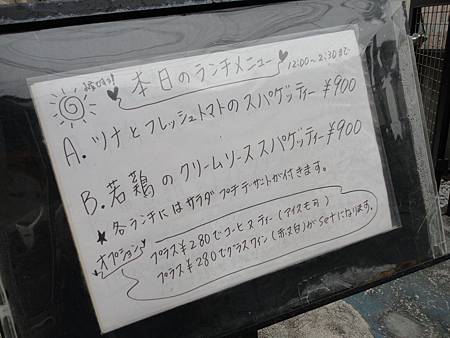 本日のランチメニュー 12:00〜2:30まで
A. ツナとフレッシュトマトのスパゲッティー ¥900
B. 若鶏のクリームソーススパゲッティー ¥900
★各ランチにはサラダ プチデザートが付きます。
オプション
プラス¥280でコーヒーorティー(アイスも可)
プラス¥280でグラスワイン(赤or白)がsetになります。